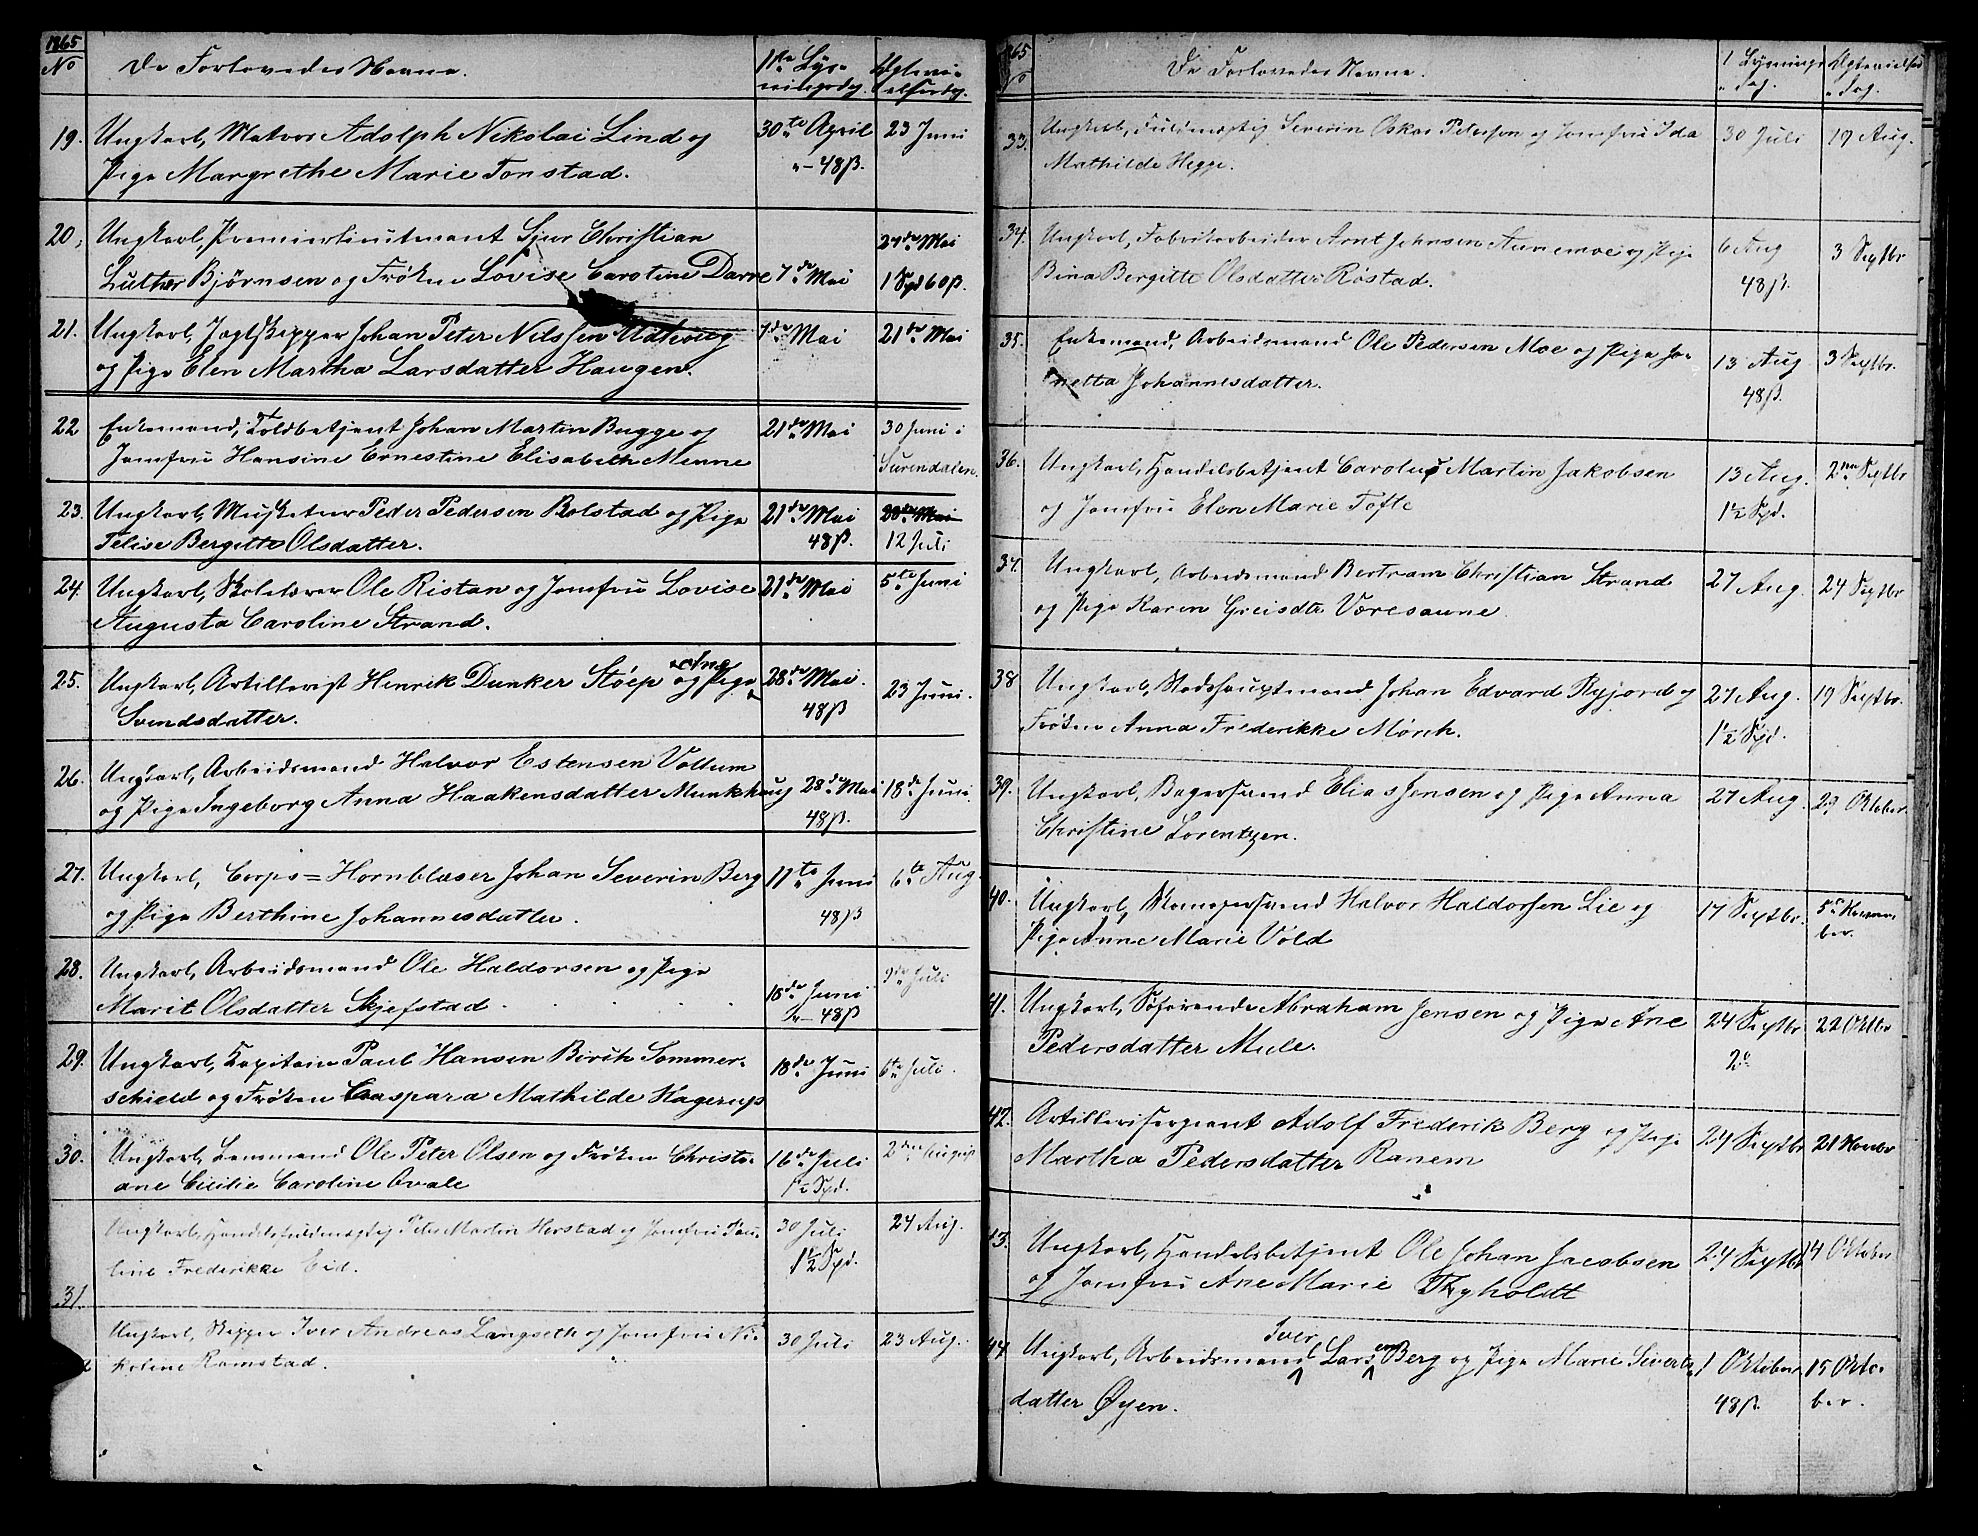 1865
No De Forlovedes Navne. 1ste Lysningsdag. Ægtevielsesdag.
19. Ungkarl, Matros Adolph Nikolai Lind og 30te April 23 Juni
Pige Margrethe Marie Tonstad. 48ß.
20, Ungkarl, Premierlieutenant Sjur Christian 24de Mai
Luther Bjørnsen og Frøken Lovise Caroline Darre 7de Mai 1 Spd 60ß.
21. Ungkarl, Jagtskipper Johan Peter Nilssen Udhoug 7de Mai 21de Mai
og Pige Elen Martha Larsdatter Haugen.
22 Enkemand, Toldbetjent Johan Martin Bugge og 21de Mai 30 Juni i
Jomfru Hansine Ernestine Elisabeth Menne Surendalen.
23. Ungkarl, Musketeer Peder Pedersen Bolstad og Pige 21de Mai 28de Mai
Telise Bergitte Olsdatter. 48ß. 12 Juli
24. Ungkarl, Skolelærer Ole Ristan og Jomfru Lovise 21de Mai 5te Juni
Augusta Caroline Strand.
25. Ungkarl, Artillerist Henrik Dunker Støep og Pige Ane 28de Mai. 23 Juni.
Svendsdatter. 48ß
26. Ungkarl, Arbeidsmand Halvor Estensen Vollum
og Pige Ingeborg Anna Haakensdatter Munkhaug 28de Mai 18de Juni
48ß.
27. Ungkarl, Corps=Hornblaser Johan Severin Berg 11te Juni 6te Aug.
og Pige Berthine Johannesdatter. 48ß
28. Ungkarl, Arbeidsmand Ole Haldorsen og Pige 9de Juli
Marit Olsdatter Skjefstad 18de Juni
48ß
29. Ungkarl, Kapitain Paul Hansen Birch Sommer- 18de Juni 6te Juli.
schield og Frøken Caspara Mathilde Hagerup
30. Ungkarl, Lensmand Ole Peter Olsen og Frøken Christi- 16de Juli 2den August
ane Cicilie Caroline Qvale 1½ Spd.
Ungkarl, Handelsfuldmægtig Peter Martin Herstad og Jomfru Pau- 30 Juli 24 Aug.
line Frederikke Eid. 1½ Spd.
31.
Ungkarl, Skipper Iver Andreas Langseth og Jomfru Ni- 30 Juli 23 Aug.
koline Ramstad.
1865
No De Forlovedes Navne. 1 Lysnings Dag. Ægtevielses Dag.
33. Ungkarl, Fuldmægtig Severin Oskar Peterson og Jomfru Ida 30 Juli 19 Aug.
Mathilde Hegge.
34. Ungkarl, Fabrikarbeider Arnt Johnsen Aunemoe og Pige 6 Aug 3 Septbr
Bina Bergitte Olsdatter Røstad. 48ß.
35. Enkemand, Arbeidsmand Ole Pedersen Moe og Pige Jo- 13 Aug 3 Septbr.
netta Johannesdatter. 48ß.
36. Ungkarl, Handelsbetjent Carolus Martin Jakobsen 13 Aug. 2den Septbr
og Jomfru Elen Marie Tofte 1½ Spd.
37. Ungkarl, Arbeidsmand Bertram Christian Strand 27 Aug. 24 Septbr
og Pige Karen Greisdtr. Voresaune.
38 Ungkarl, Stadshauptmand Johan Edvard Ryjord og 27 Aug. 19 Septbr.
Frøken Anna Frederikke Mörch. 1½ Spd.
39. Ungkarl, Bagersvend Elias Jensen og Pige Anna 27 Aug. 29 Oktober.
Christine Lorentzen.
40. Ungkarl, Skomagersvend Halvor Haldorsen Lie og 17 Septbr. 5te Novem-
Pige Anne Marie Vold ber.
41. Ungkarl, Søfarende Abraham Jensen og Pige Ane 24 Septbr 22 Oktbr
Pedersdatter Mule.
42. Artillerisergeant Adolf Frederik Berg og Pige 24 Septbr 21 Novbr
Martha Pedersdatter Ranem
43. Ungkarl, Handelsbetjent Ole Johan Jacobsen 24 Septbr 14 Oktober
og Jomfru Ane Marie Thyholdt
44 Ungkarl, Arbeidsmand Iver Larsen Berg og Pige Marie Siverts- 1 Oktober 15 Okto-
datter Øyen. 48ß. ber.